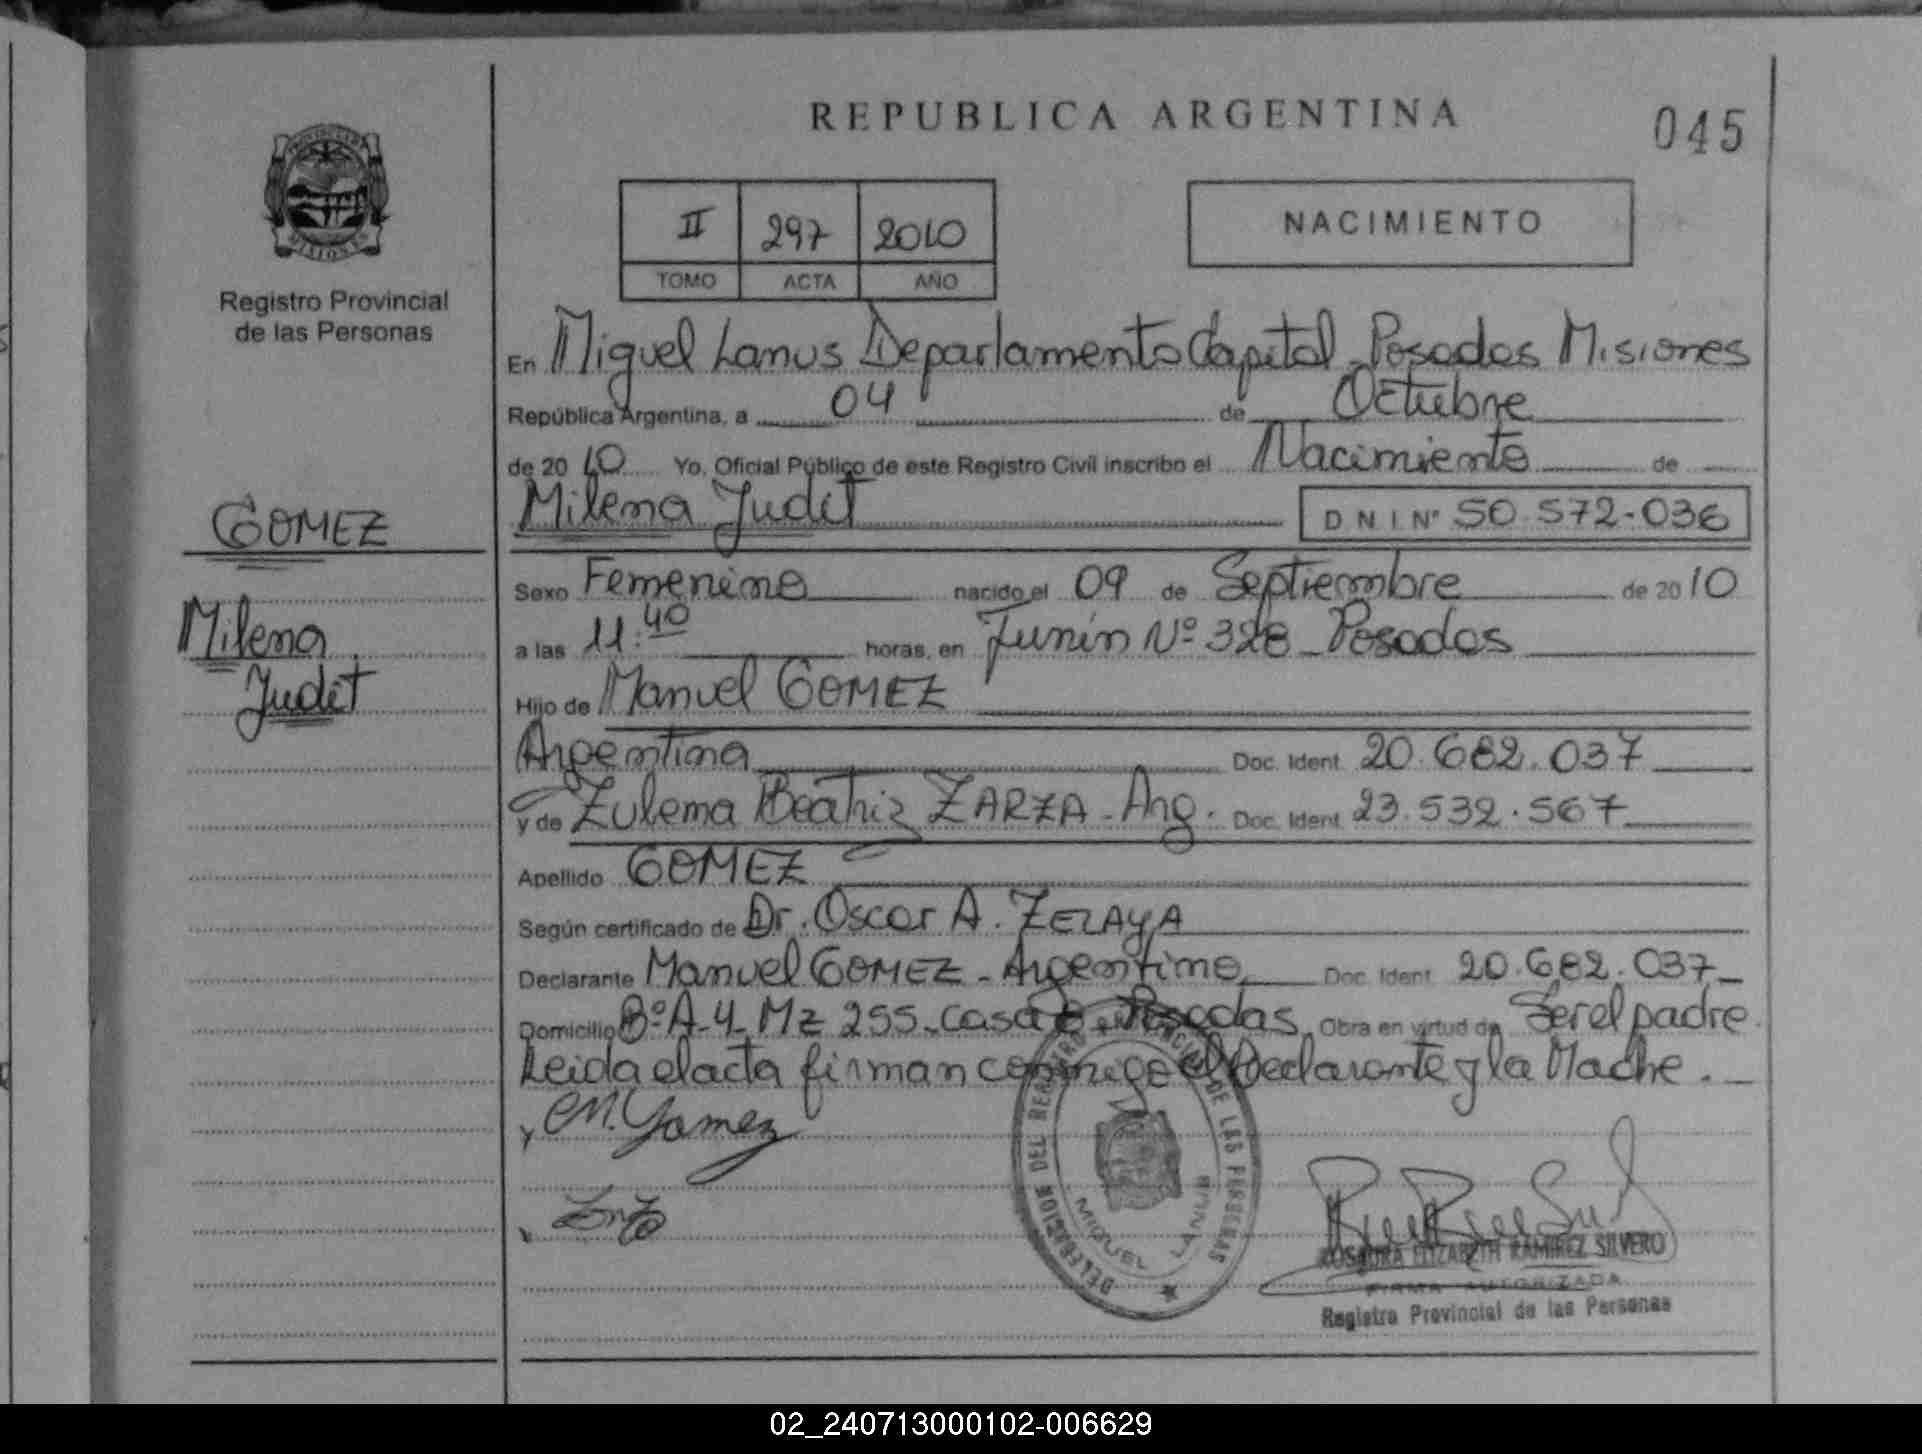 REPUBLICA ARGENTINA
045
PROVINCIA DE MISIONES
Registro Provincial
de las Personas
II 297 2010
TOMO ACTA AÑO
NACIMIENTO
En Miguel Lanus Departamento Capital Posadas Misiones
República Argentina, a 04 de Octubre
de 2010 Yo, Oficial Público de este Registro Civil inscribo el Nacimiento de
GOMEZ
Milena Judit
Milena Judit DNI Nº 50.572-036
Sexo Femenino nacido el 09 de Septiembre de 2010
a las 11:40 horas, en Junín Nº 328 - Posadas
Hijo de Manuel GOMEZ
Argentina Doc. Ident 20.682.037
y de Zulema Beatriz ZARZA - Arg. Doc. Ident 23.532.567
Apellido GOMEZ
Según certificado de Dr. Oscar A. ZELAYA
Declarante Manuel GOMEZ - Argentino Doc. Ident 20.682.037
Domicilio Bº A-4 Mz 255 - Casa Posadas Obra en virtud de Ser el padre
Leida el acta firman conmigo el Declarante y la Madre.
M. Gomez
DELEGACION DEL REGISTRO PROVINCIAL DE LAS PERSONAS
MIGUEL LANUS
ROSAURA ELIZABETH RAMIREZ SILVERO
FIRMA AUTORIZADA
Registro Provincial de las Personas
02_240713000102-006629